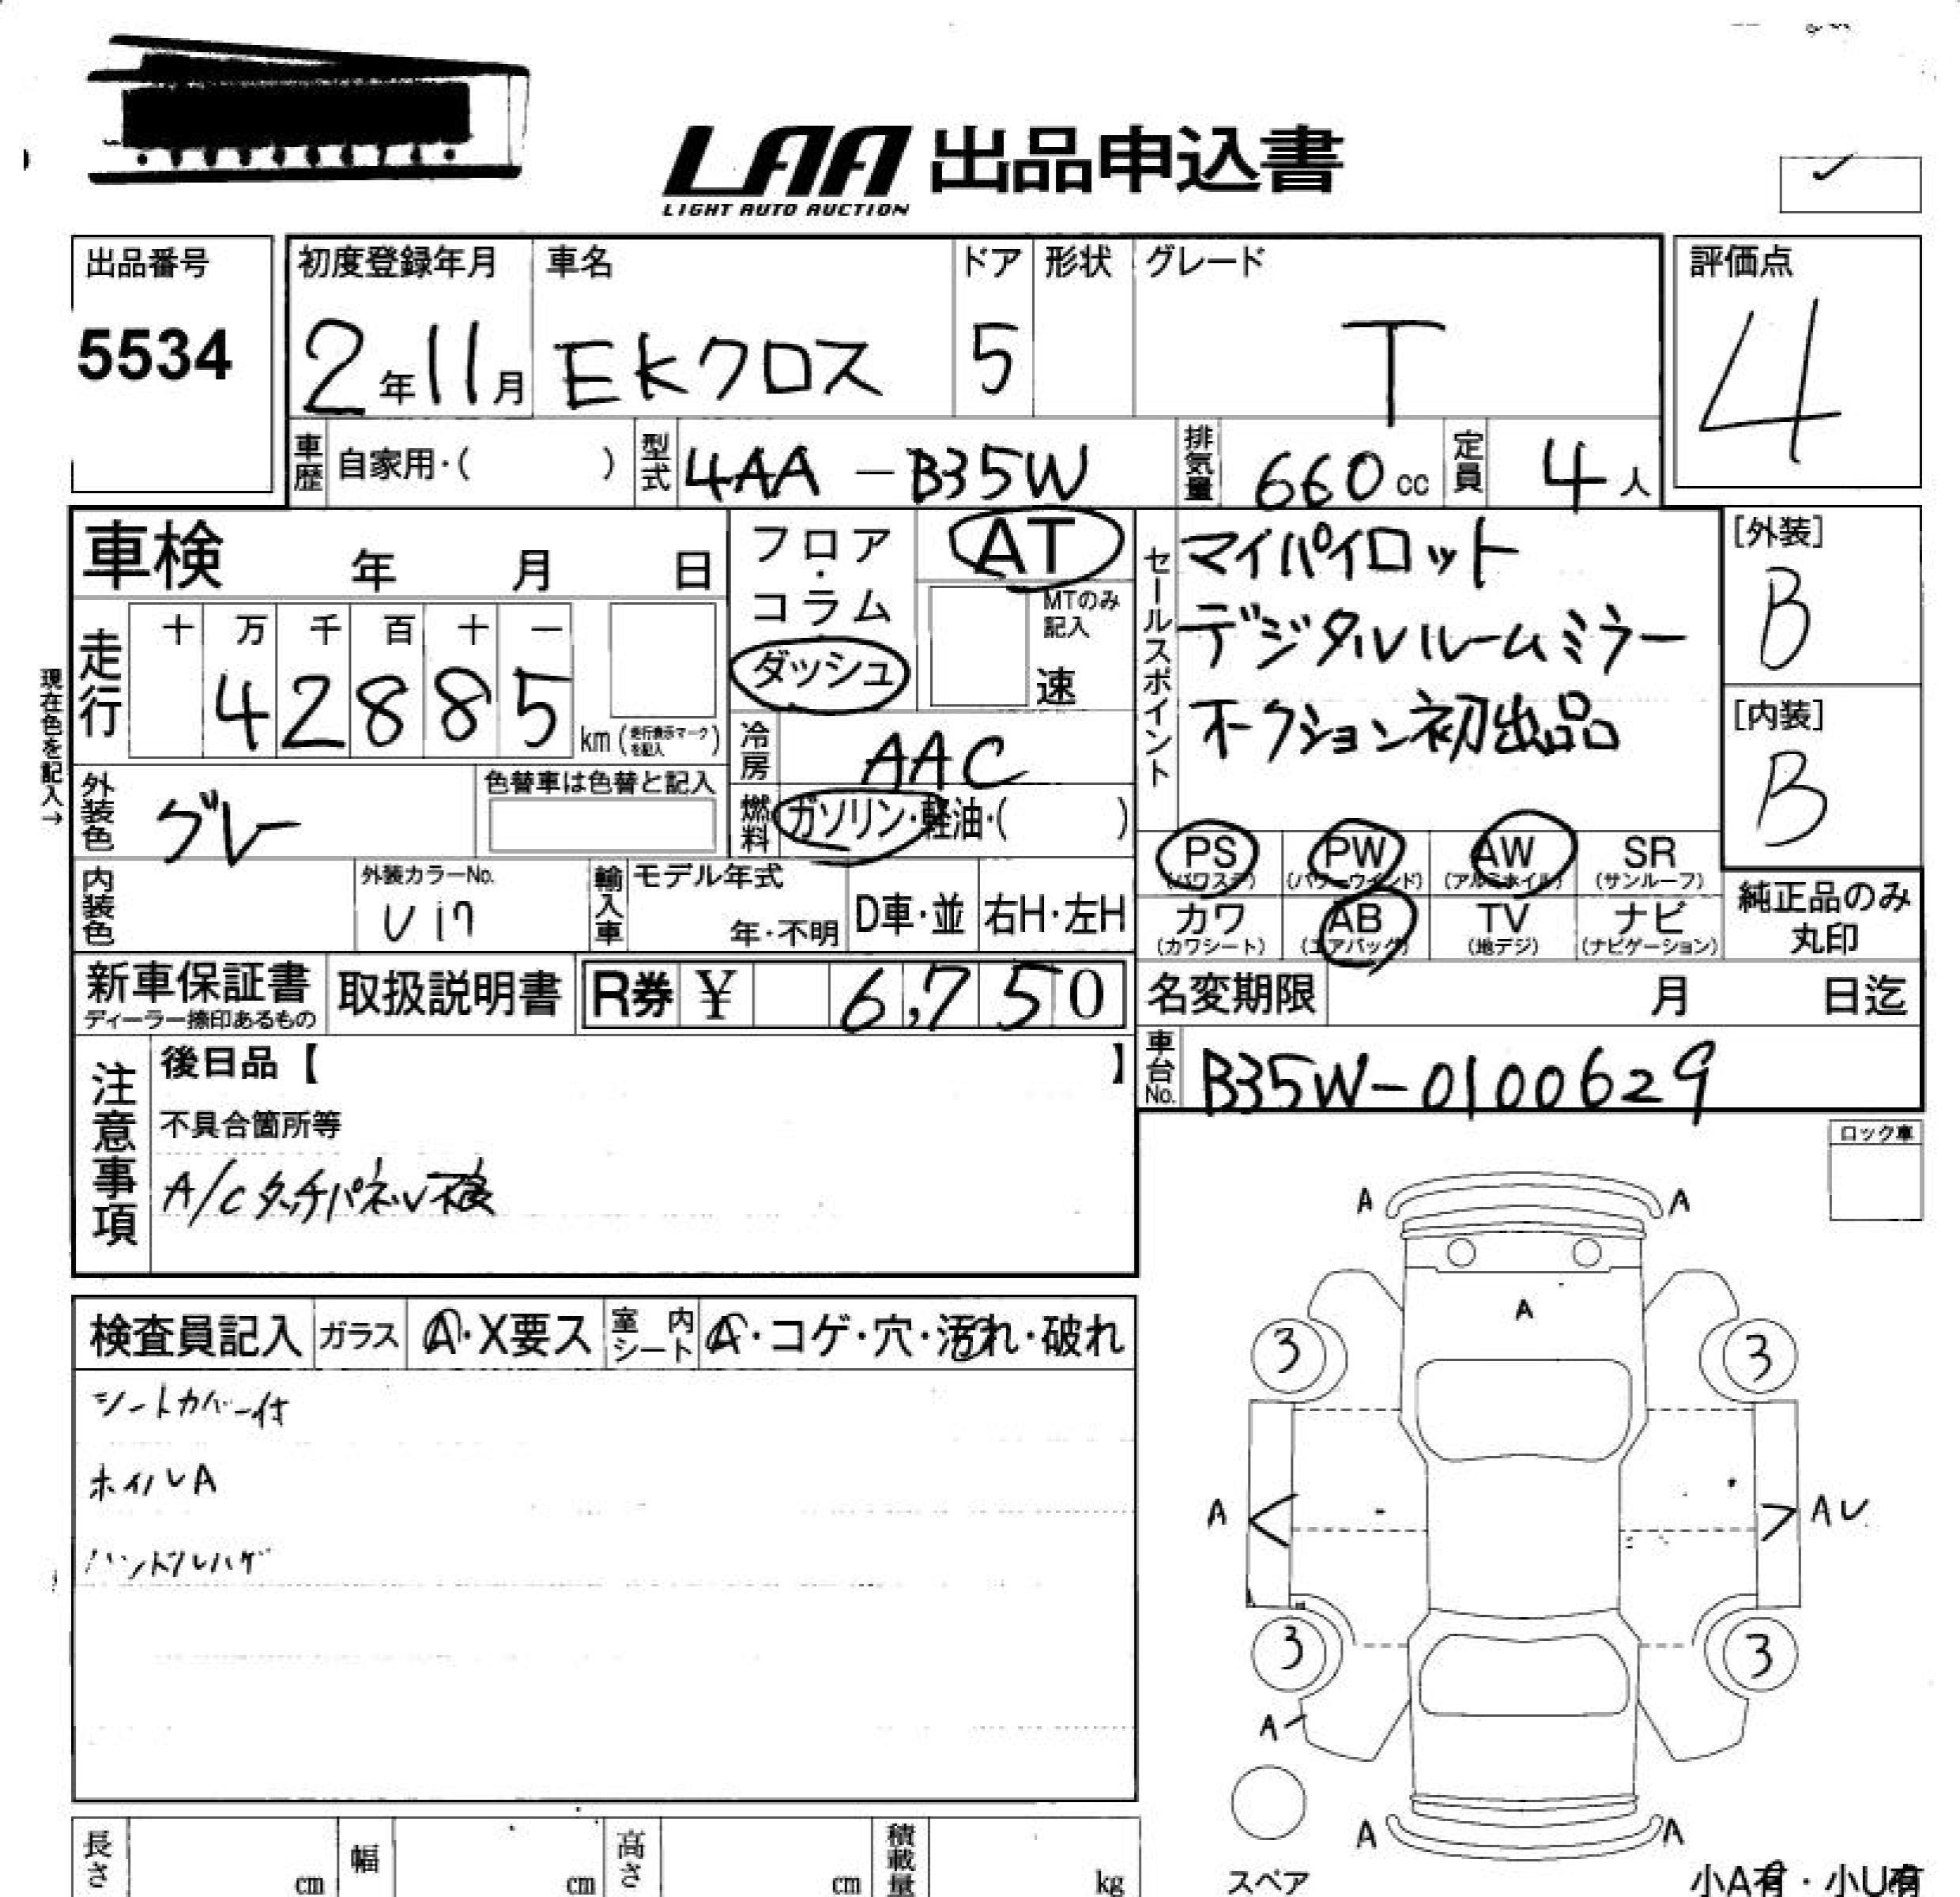 LAA 出品申込書
LIGHT AUTO AUCTION
出品番号
5534
初度登録年月
2年11月
車名
EKクロス
ドア
5
形状
グレード
T
評価点
4
車歴 自家用・( )
型式 4AA-B35W
排気量 660cc
定員 4人
車検 年 月 日
フロア・コラム
ダッシュ
AT
MTのみ記入
速
セールスポイント
マイパイロット
デジタルルームミラー
オークション初出品
[外装]
B
[内装]
B
現在色を記入→
走行
十 万 千 百 十 一
4 2 8 8 5 km(走行表示マークを記入)
冷房 AAC
燃料 ガソリン・軽油・( )
外装色 グレー
色替車は色替と記入
内装色
外装カラーNo.
U17
輸入車
モデル年式
年・不明
D車・並
右H・左H
PS (パワステ)
PW (パワーウインド)
AW (アルミホイル)
SR (サンルーフ)
カワ (カワシート)
AB (エアバッグ)
TV (地デジ)
ナビ (ナビゲーション)
純正品のみ丸印
新車保証書
ディーラー捺印あるもの
取扱説明書
R券 ¥ 6,750
名変期限 月 日迄
車台No. B35W-0100629
注意事項
後日品【 】
不具合箇所等
A/Cタッチパネル
ロック車
検査員記入
ガラス A・X要ス
室内シート A・コゲ・穴・汚れ・破れ
シートカバー付
ホイルA
ハンドルハゲ
A A
A
3 3
A AU
3 3
A
A A
スペア
小A有・小U有
長さ cm
幅 cm
高さ cm
積載量 kg